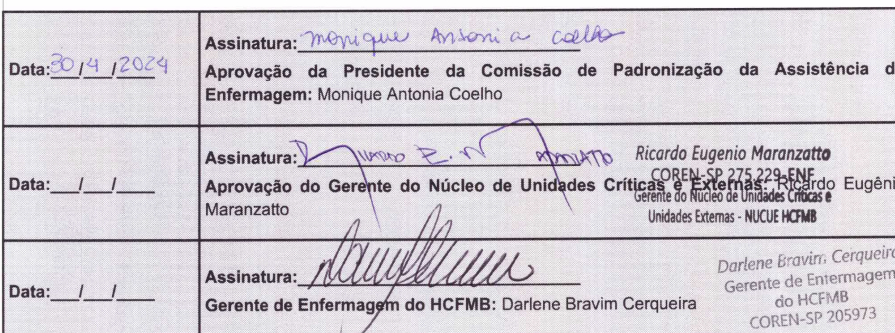 Data: 30/4/2024
Assinatura: Monique Antonia Coelho
Aprovação da Presidente da Comissão de Padronização da Assistência d
Enfermagem: Monique Antonia Coelho
Data:__/__/__
Assinatura:
Ricardo Eugenio Maranzatto
COREN-SP 275.229-ENF
Gerente do Núcleo de Unidades Críticas e
Unidades Externas - NUCUE HCFMB
Aprovação do Gerente do Núcleo de Unidades Críticas e Externas: Ricardo Eugêni
Maranzatto
Data:__/__/__
Assinatura:
Gerente de Enfermagem do HCFMB: Darlene Bravim Cerqueira
Darlene Bravim Cerqueira
Gerente de Enfermagem
do HCFMB
COREN-SP 205973